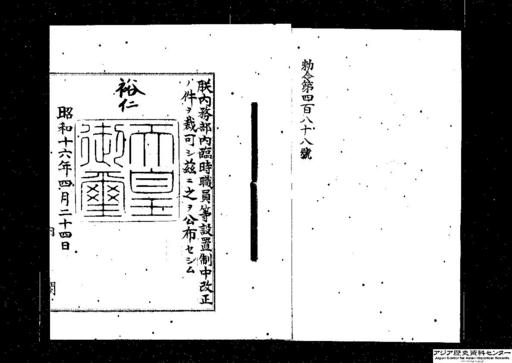 勅令第四百八十八號
朕内務部内臨時職員等設置制中改正
ノ件ヲ裁可シ茲ニ之ヲ公布セシム
裕仁
天皇御璽
昭和十六年四月二十四日
アジア歴史資料センター
Japan Center for Asian Historical Records